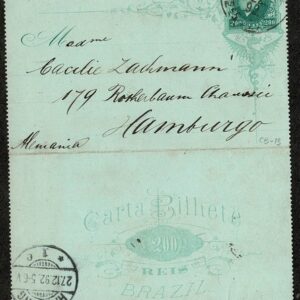 Madame
Cacilie Lachmann
179 Rotherbaum Chaussée
Hamburgo
Alemania
CB-13
Carta Bilhete
200
REIS
BRAZIL
* 1 c
27.12.92 5-6 V